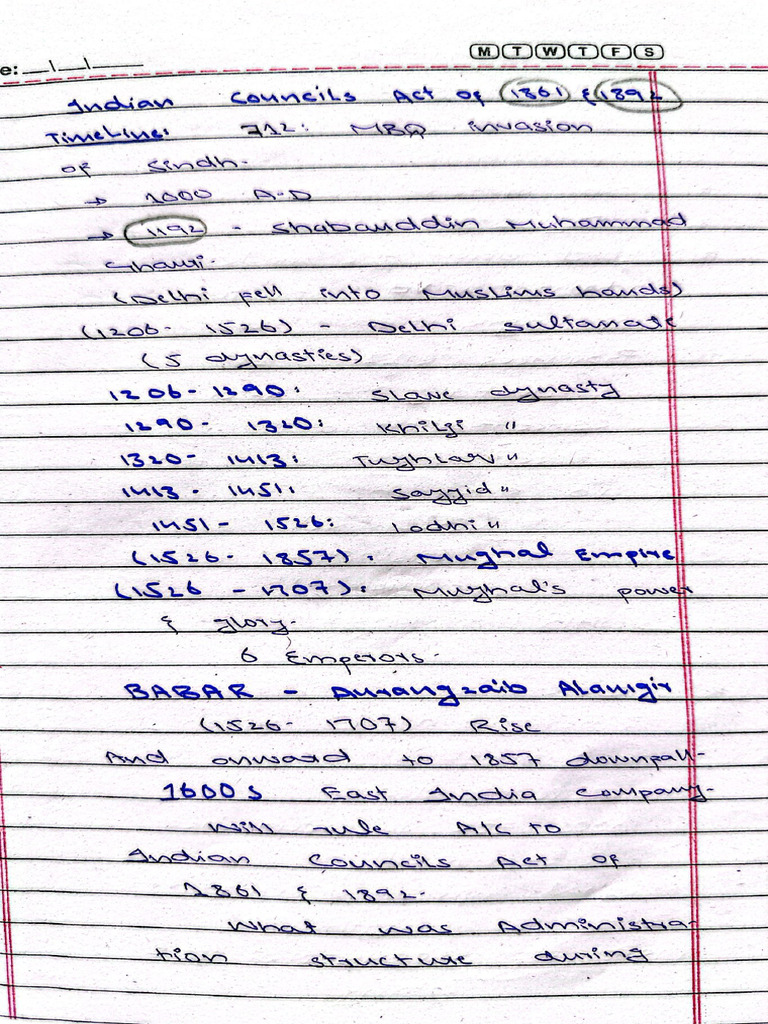 M T W T F S
e: __\__\____
Indian Councils Act of 1861 & 1892
Timeline: 712: MBQ invasion
of Sindh.
→ 1000 A.D
→ 1192 - Shabauddin Muhammad
Ghauri.
(Delhi fell into Muslims hands)
(1206- 1526) - Delhi Sultanate
(5 dynasties)
1206-1290: Slave dynasty
1290- 1320: Khilji "
1320- 1413: Tughlaq "
1413 - 1451: Sayyid "
1451- 1526: Lodhi "
(1526- 1857). Mughal Empire
(1526 -1707): Mughal's power
& glory.
6 Emperors.
BABAR - Aurangzaib Alamgir
(1526- 1707) Rise
And onward to 1857 downfall.
1600s East India Company.
Will rule A/c to
Indian Councils Act of
1861 & 1892.
What was Administra-
tion structure during